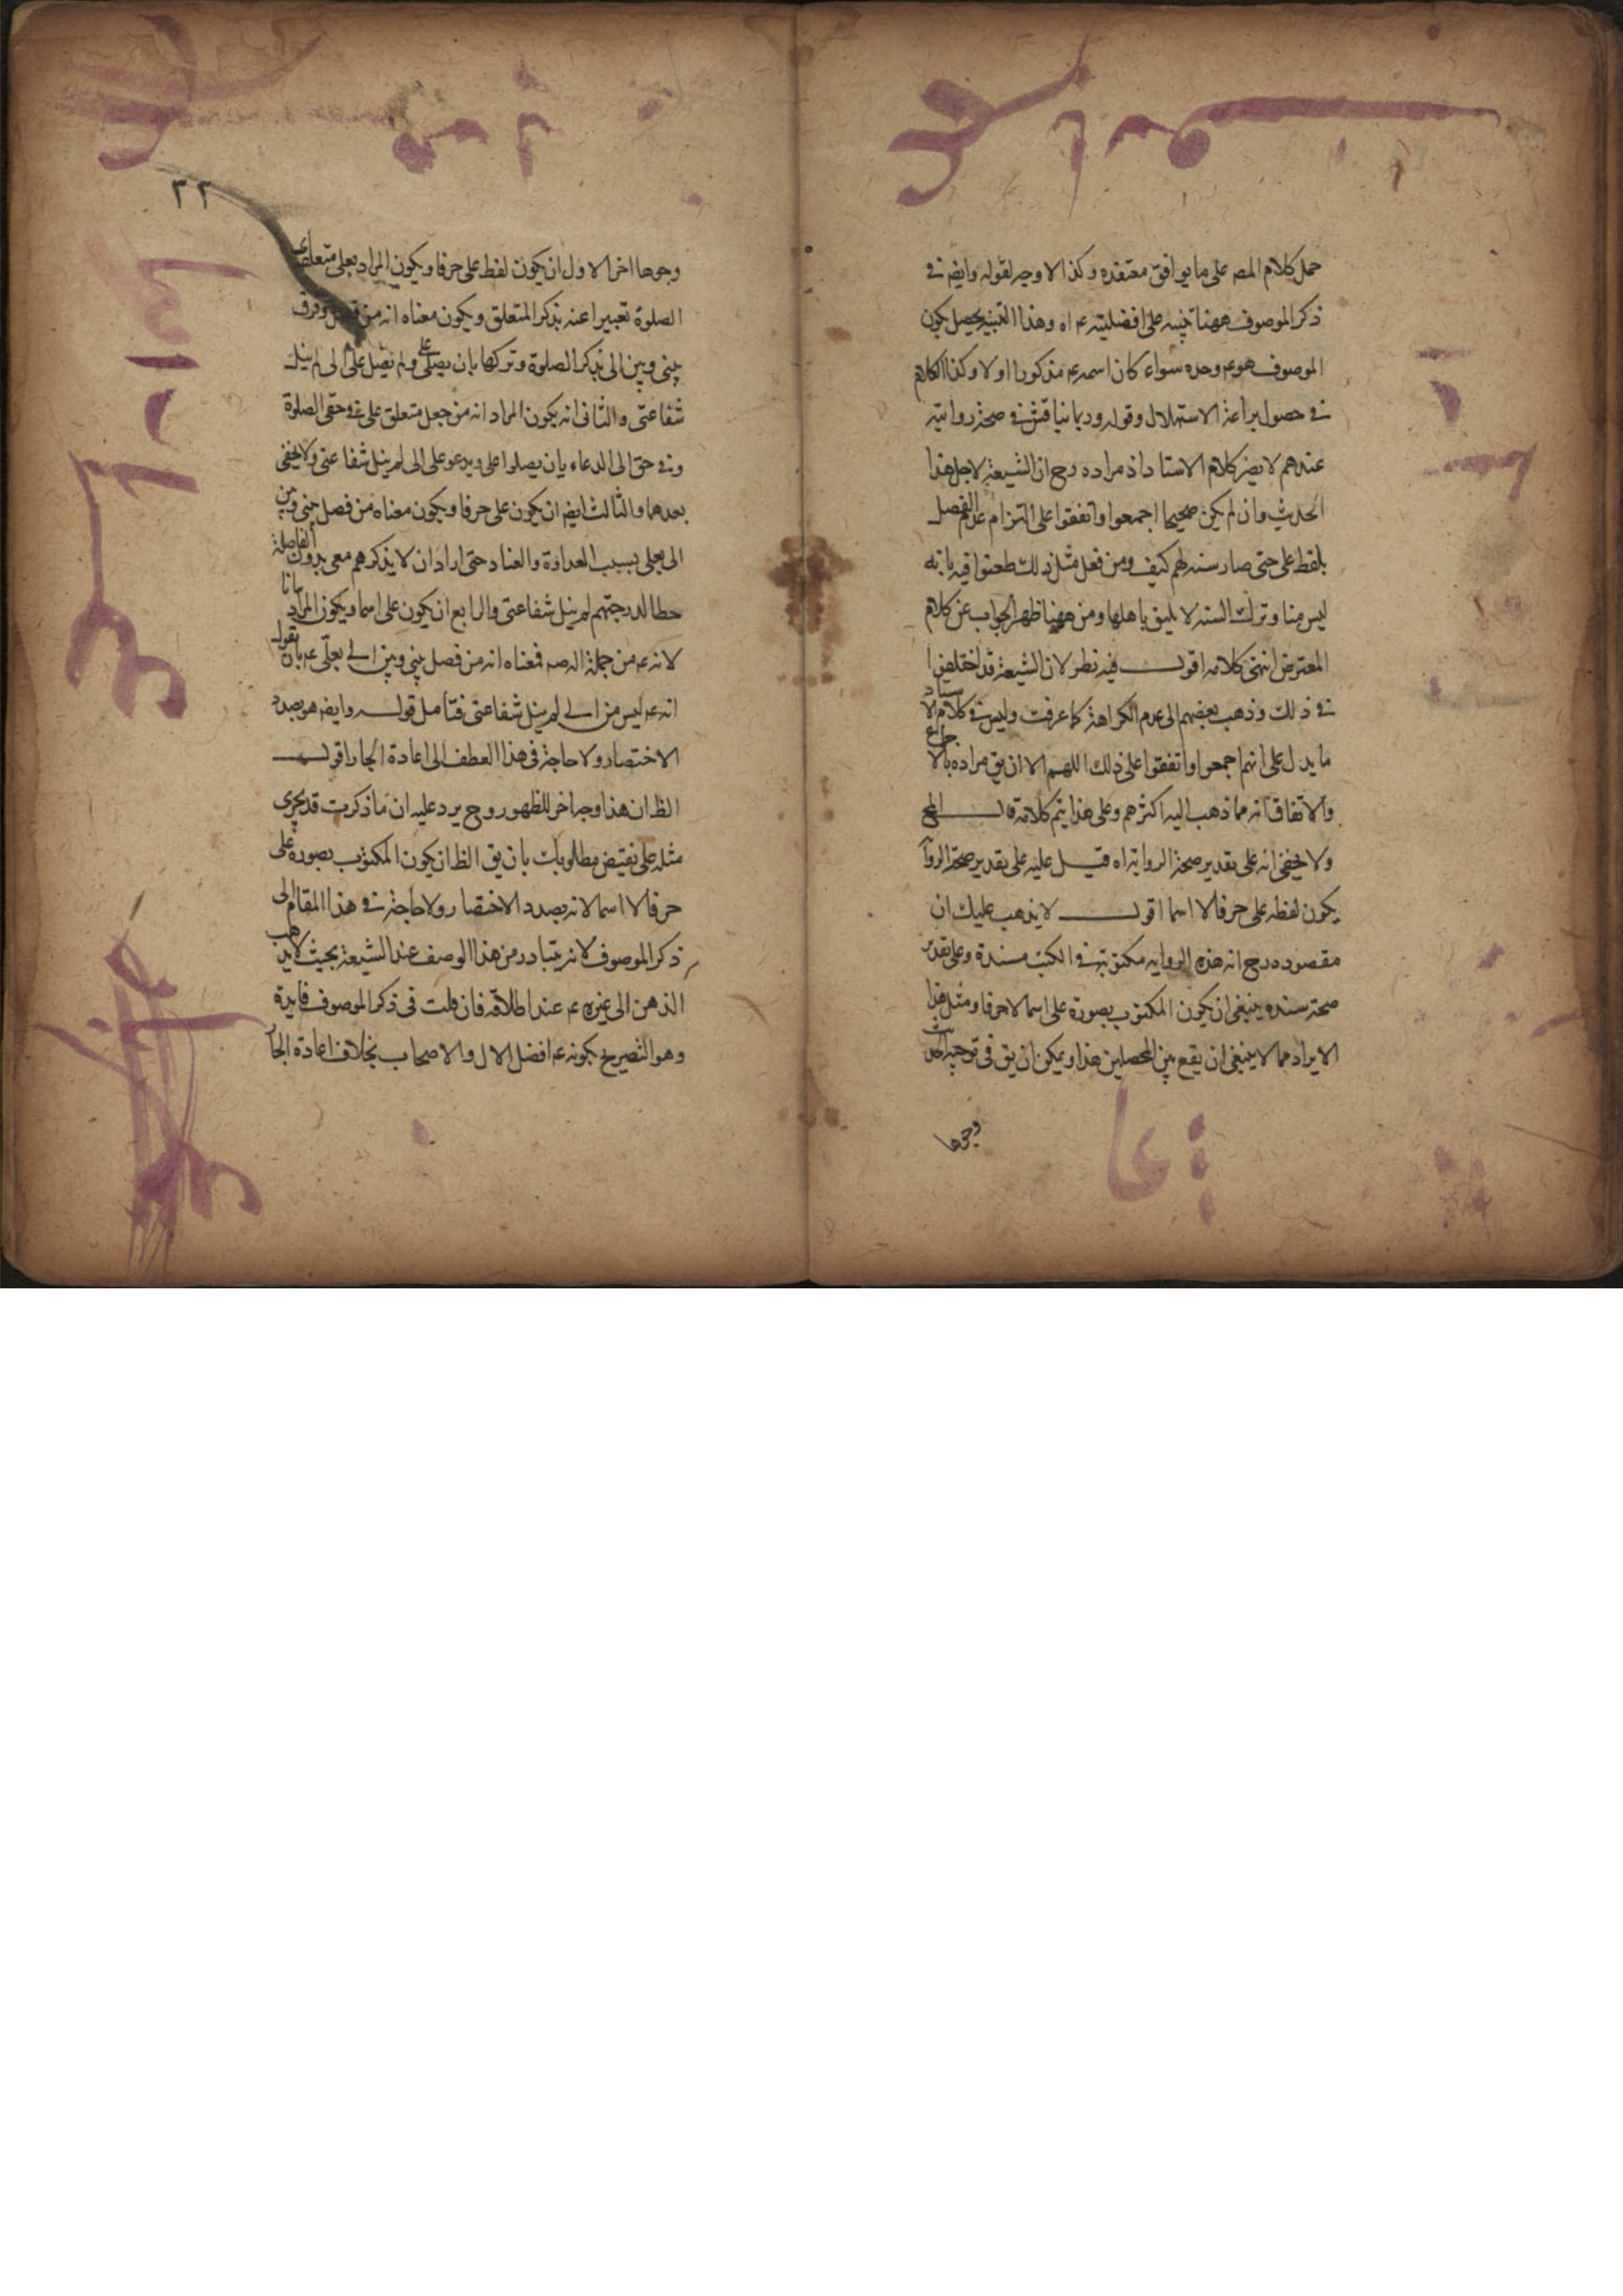 حمل كلام المصه على ما يوافق معتقده وكذا لا وجه لقوله وايضه في
ذكر الموصوف ههنا تنبيه على افضليته عم اه وهذا التنبيه يحصل بكون
الموصوف هو عم وحده سواء كان اسمه عم مذكورا اولا وكذا الكلام
في حصول براعة الاستهلال وقوله وربما يناقش في صحة روايته
عندهم لا يضر كلام الاستاد اذ مراده رح ان الشيعة لاجل هذا
الحديث وان لم يكن صحيحا اجمعوا واتفقوا على التزام عدم الفصل
بلفظ على حتى صار سنة لهم كيف ومن فعل مثل ذلك طعنوا فيه بانه
ليس منا وترك السنة لا يليق باهلها ومن ههنا ظهر الجواب عن كلام
المعترض انتهى كلامه اقول فيه نظر لان الشيعة قد اختلفوا
في ذلك وذهب بعضهم الى عدم الكراهة كما عرفت وليس في كلام الاستاد
ما يدل على انهم اجمعوا واتفقوا على ذلك اللهم الا ان يق مراده بالاجماع
والاتفاق انه مما ذهب اليه اكثرهم وعلى هذا يتم كلامه قال المح
ولا يخفى انه على تقدير صحة الرواية اه قيل عليه على تقدير صحة الروا
يكون لفظه على حرفا لا اسما اقول لا يذهب عليك ان
مقصوده رح ان هذه الرواية مكتوبة في الكتب مسندة وعلى تقدير
صحة سنده ينبغي ان يكون المكتوب بصورة على اسما لا حرفا ومثل هذا
الايراد مما لا ينبغي ان يقع بين المحصلين هذا ويمكن ان يق في توجيه الحديث
وجوها
٢٢
وجوها اخر الاول ان يكون لفظ على حرفا ويكون المراد بعلى متعلقه اى
الصلوة تعبيرا عنه بذكر المتعلق ويكون معناه انه من فصل وفرق
بيني وبين الى بذكر الصلوة وتركها بان يصلى على ولم يصل على الى لم ينل
شفاعتى والثانى انه يكون المراد انه من جعل متعلق على في وحقى الصلوة
وفى حق الى الدعاء بان يصلوا على ويدعو على الى لم ينل شفاعتى ولا يخفى
بعدهما والثالث ايضه ان يكون على حرفا ويكون معناه من فصل بينى وبين
الى بعلى بسبب العداوة والعناد حتى اراد ان لا يذكرهم معى بدون الفاصلة
حطا لدرجتهم لم ينل شفاعتى والرابع ان يكون على اسما ويكون المراد بيانا
لانه عم من جملة اله صه فمعناه انه من فصل بينى وبين الى بعلى عم بان يقول
انه عم ليس من الى لم ينل شفاعتى فتأمل قوله وايضه هو بصدد
الاختصار ولا حاجة فى هذا العطف الى اعادة الجار اقول
الظ ان هذا وجه اخر للظهور وح يرد عليه ان ما ذكرت قد يجرى
مثله على نقيض مطلوبك بان يق الظ ان يكون المكتوب بصورة على
حرفا لا اسما لانه بصدد الاختصار ولا حاجة في هذا المقام الى
ذكر الموصوف لانه يتبادر من هذا الوصف عند الشيعة بحيث لا يذهب
الذهن الى غيره عم عند اطلاقه فان قلت فى ذكر الموصوف فايدة
وهو التصريح بكونه عم افضل الال والاصحاب بخلاف اعادة الجا